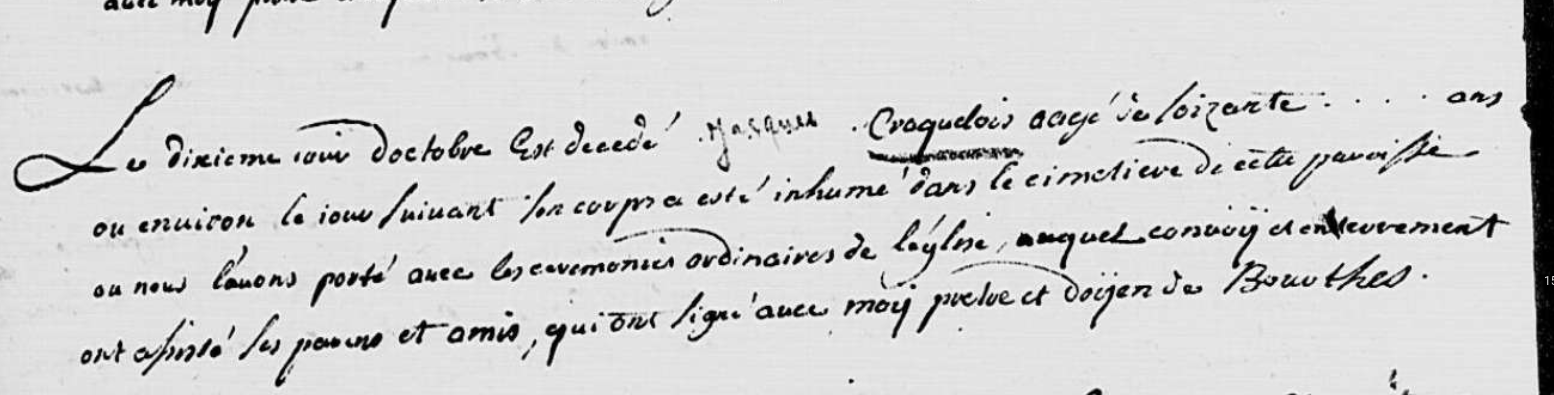 avec moy
Le dixieme iour doctobre Est decedé Jasques Craquelois aagé de soizante . . . . ans
ou enuiron le iour suiuant son corps a esté inhumé dans le cimetiere de cette paroisse
ou nous l'auons porté auec les ceremonies ordinaires de l'eglise, auquel conuoÿ et enterrement
ont assisté ses parens et amis, qui ont signé auec moÿ prebre et doÿen de Bourthes.